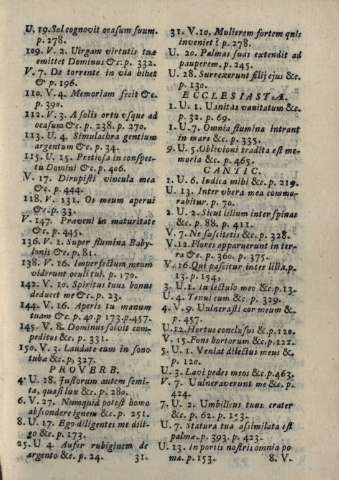 U. 19. Sol cognovit ocasum suum.
p. 278.
109. V. 2. Uirgam virtutis tuæ
emittet Dominus &c. p. 332.
V. 7. De torrente in via bibet
&c. p. 196.
110. V. 4. Memoriam fecit &c.
p. 390.
112. V. 3. A solis ortu vsque ad
ocasum &c. p. 238. p. 270.
113. U. 4. Simulachra gentium
argentum &c. p. 34.
115. U. 15. Pretiosa in conspec-
tu Domini &c. p. 406.
V. 17. Dirupisti vincula mea
&c. p. 444.
118. V. 131. Os meum aperui
&c. p. 33.
V. 147. Præveni in maturitate
&c. p. 445.
136. V. 1. Super flumina Baby-
lonis &c. p. 81.
138. V. 16. Imperfectum meum
viderunt oculi tui. p. 170.
142. V. 10. Spiritus tuus bonus
deducet me &c. p. 23.
144. V. 16. Aperis tu manum
tuam &c. p. 40. p. 173. p. 457.
145. V. 8. Dominus solvit com-
peditos &c. p. 331.
150. V. 3. Laudate eum in sono
tubæ p. 327.
PROVERB.
4. U. 28. Justorum autem semi-
ta, quasi lux &c. p. 280.
6. V. 27. Numquid potest homo
abscondere ignem &c. p. 251.
8. U. 17. Ego diligentes me dili-
go &c. p. 173.
25. U. 4 Aufer rubiginem de
argento &c. p. 24. 31.
31. V. 10. Mulierem fortem quis
inveniet? p. 278.
U. 20. Palmas suas extendit ad
pauperem. p. 245.
U. 28. Surrexerunt filij ejus &c.
p. 130.
ECCLESIASTÆ.
1. U. 1. Uanitas vanitatum &c.
p. 32. p. 69.
1. U. 7. Omnia flumina intrant
in mare &c. p. 335.
9. U. 5. Oblivioni tradita est me-
moria &c. p. 465.
CANTIC.
1. U. 6. Indica mibi &c. p. 219.
U. 13. Inter vbera mea commo-
rabitur. p. 70.
2. U. 2. Sicut lilium inter spinas
&c. p. 88. p. 411.
V. 7. Ne suscitetis &c. p. 328.
V. 12. Flores apparuerunt in ter-
ra &c. p. 360. p. 375.
V. 16. Qui pascitur inter lilia. p.
13. p. 154.
3. U. 1. In lectulo meo &c. p. 13.
U. 4. Tenui eum &c. p. 329.
4. V. 9. Uulnerasti cor meum &c.
p. 457.
U. 12. Hortus conclusus &c. p. 120.
V. 15. Fons hortorum &c. p. 122.
5. U. 1. Veniat dilectus meus &c.
p. 120.
U. 3. Lavi pedes meos &c. p. 463.
V. 7. Uulneraverunt me &c. p.
424.
7. U. 2. Umbilicus tuus crater
&c. p. 62. p. 153.
U. 7. Statura tua assimilata est
palmæ. p. 393. p. 423.
U. 13. In portis nostris omnia po-
ma. p. 153. 8. V.